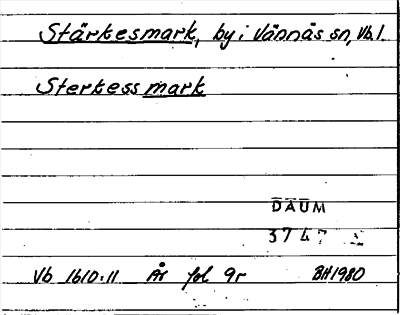 Stärkesmark, by i Vännäs sn, Vb. l.
Sterkess mark
DAUM
3747
Vb 1610:11 År fol 9r BH 1980